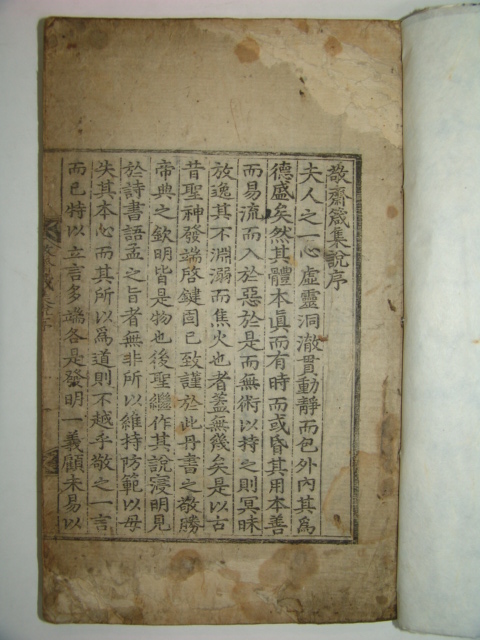 敬齋箴集說序
夫人之一心虛靈洞澈貫動靜而包外內其爲
德盛矣然其體本眞而有時而或昏其用本善
而易流而入於惡於是而無術以持之則冥昧
放逸其不淵溺而焦火也者蓋無幾矣是以古
昔聖神發端啓鍵固已致謹於此丹書之敬勝
帝典之欽明皆是物也後聖繼作其說寖明見
於詩書語孟之旨者無非所以維持防範以毋
失其本心而其所以爲道則不越乎敬之一言
而已特以立言多端各是發明一義顧未易以